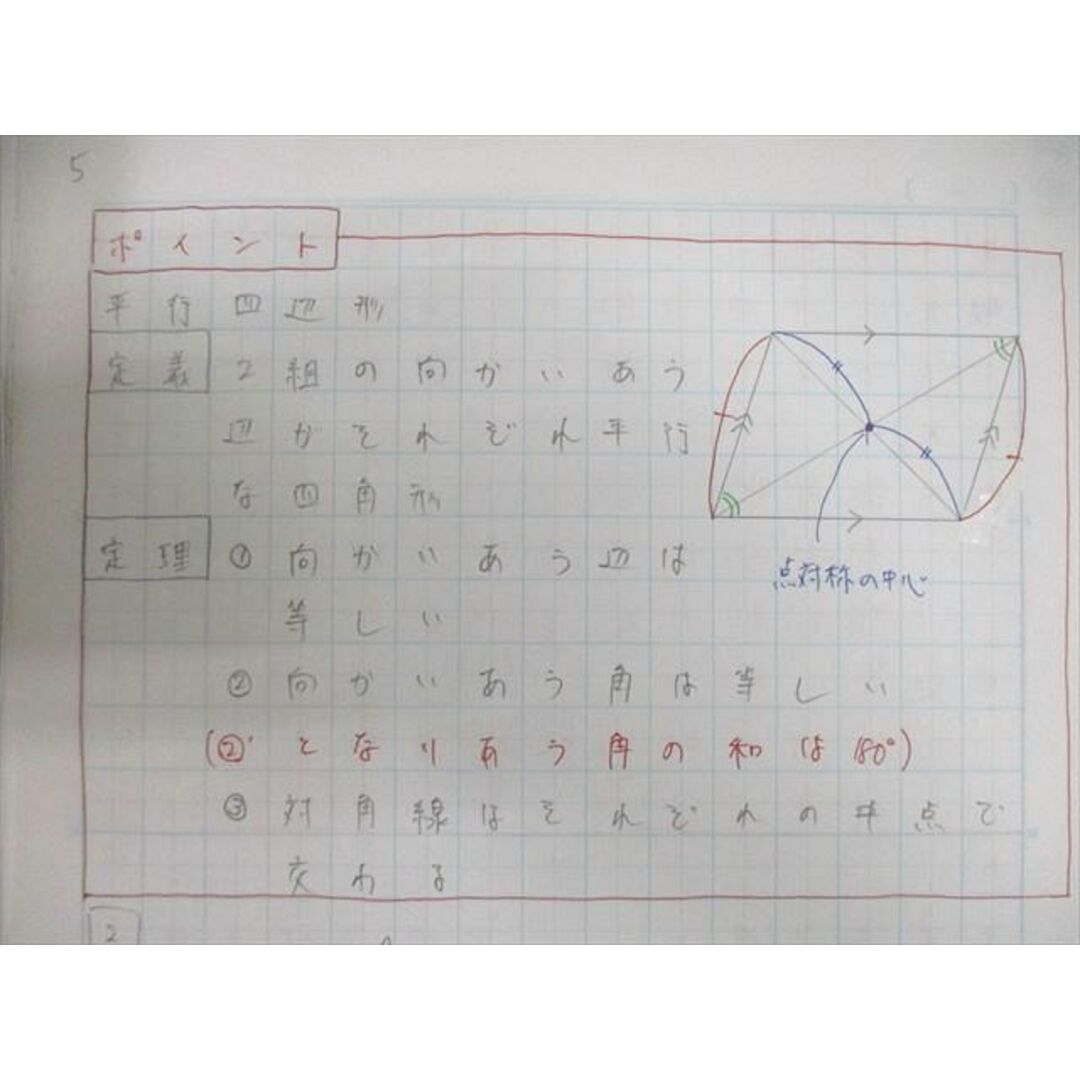 5
ポイント
平行四辺形
定義 2組の向かいあう
辺がそれぞれ平行
な四角形
定理 ①向かいあう辺は
等しい
②向かいあう角は等しい
(②'となりあう角の和は180°)
③対角線はそれぞれの中点で
交わる
点対称の中心
2